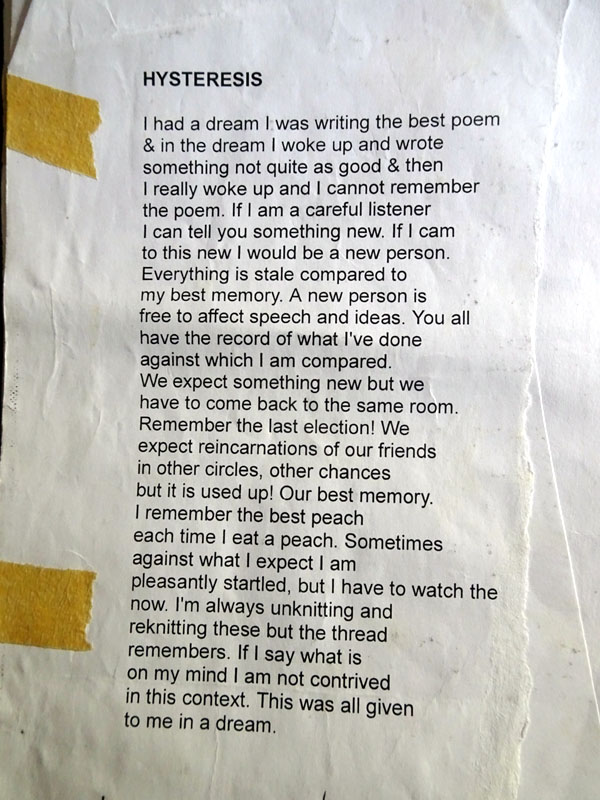 HYSTERESIS
I had a dream I was writing the best poem
& in the dream I woke up and wrote
something not quite as good & then
I really woke up and I cannot remember
the poem. If I am a careful listener
I can tell you something new. If I cam
to this new I would be a new person.
Everything is stale compared to
my best memory. A new person is
free to affect speech and ideas. You all
have the record of what I've done
against which I am compared.
We expect something new but we
have to come back to the same room.
Remember the last election! We
expect reincarnations of our friends
in other circles, other chances
but it is used up! Our best memory.
I remember the best peach
each time I eat a peach. Sometimes
against what I expect I am
pleasantly startled, but I have to watch the
now. I'm always unknitting and
reknitting these but the thread
remembers. If I say what is
on my mind I am not contrived
in this context. This was all given
to me in a dream.